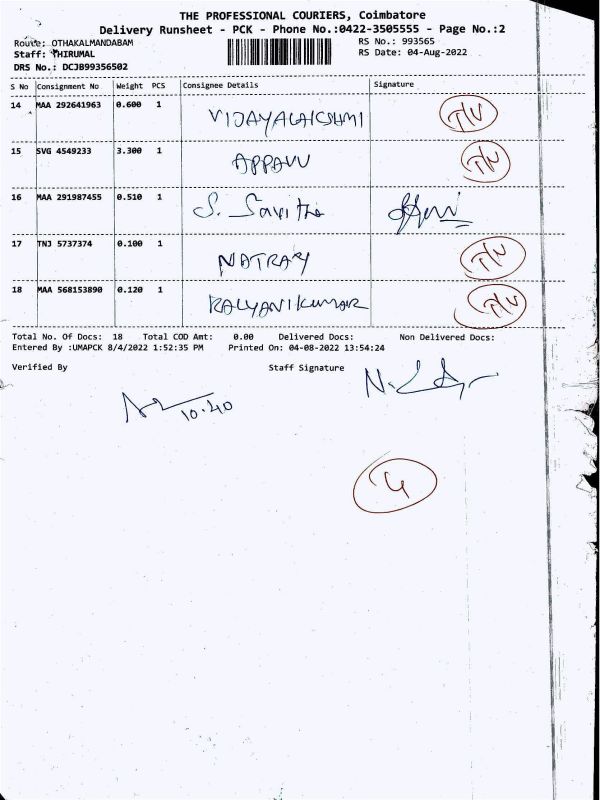 THE PROFESSIONAL COURIERS, Coimbatore
Delivery Runsheet - PCK - Phone No.:0422-3505555 - Page No.:2
Route: OTHAKALMANDABAM RS No.: 993565
Staff: THIRUMAL RS Date: 04-Aug-2022
DRS No.: DCJB99356502
S No Consignment No Weight PCS Consignee Details Signature
14 MAA 292641963 0.600 1 VIJAYALAKSHMI T/V
15 SVG 4549233 3.300 1 APPAVU T/V
16 MAA 291987455 0.510 1 S. Savitha
17 TNJ 5737374 0.100 1 NATRAJ T/V
18 MAA 568153890 0.120 1 KALYANIKUMAR T/V
Total No. Of Docs: 18 Total COD Amt: 0.00 Delivered Docs: Non Delivered Docs:
Entered By :UMAPCK 8/4/2022 1:52:35 PM Printed On: 04-08-2022 13:54:24
Verified By Staff Signature
10.40
4